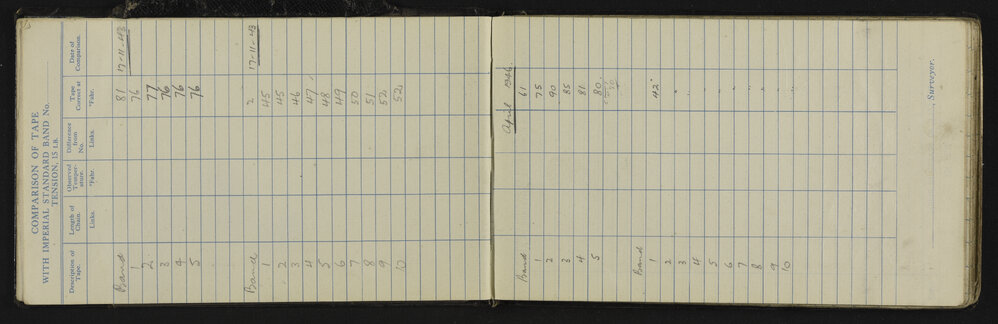 COMPARISON OF TAPE
WITH IMPERIAL STANDARD BAND No.
TENSION, 15 LB.
Description of Tape. Length of Chain. Observed Temper-ature. Difference from No. Tape Correct at Date of Comparison.
Links. °Fahr. Links. °Fahr.
Band 81 17-11-43
1 76
2 77
3 76
4 76
5 76
Band 2 17-11-43
1 45
2 45
3 46
4 47
5 48
6 49
7 50
8 51
9 52
10 52
April 1946
Band 61
1 75
2 90
3 85
4 81
5 80
Band
1 42°
2 "
3 "
4 "
5 "
6 "
7 "
8 "
9 "
10 "
, Surveyor.